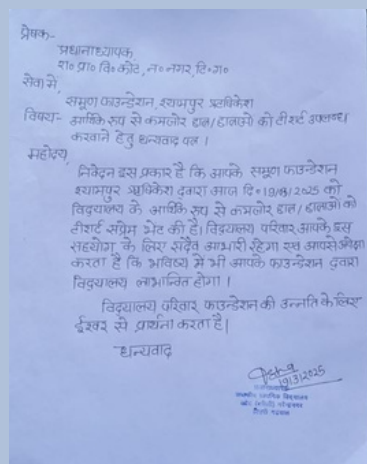 प्रेषक-
प्रधानाध्यापक
रा० प्रा० वि० कोट, न० नगर, टि० ग०
सेवा में,
समूण फाउन्डेशन, श्यामपुर ऋषिकेश
विषय- आर्थिक रूप से कमजोर छात्र/छात्राओं को टीशर्ट उपलब्ध
करवाने हेतु धन्यवाद पत्र।
महोदय,
निवेदन इस प्रकार है कि आपके समूण फाउन्डेशन
श्यामपुर ऋषिकेश द्वारा आज दि० 19/3/2025 को
विद्यालय के आर्थिक रूप से कमजोर छात्र/छात्राओं को
टीशर्ट सप्रेम भेंट की है। विद्यालय परिवार आपके इस
सहयोग के लिए सदैव आभारी रहेगा एवं आपसे अपेक्षा
करता है कि भविष्य में भी आपके फाउन्डेशन द्वारा
विद्यालय लाभान्वित होगा।
विद्यालय परिवार फाउन्डेशन की उन्नति के लिए
ईश्वर से प्रार्थना करता है।
धन्यवाद
19/3/2025
प्रधानाध्यापक
राजकीय प्राथमिक विद्यालय
टिहरी गढ़वाल